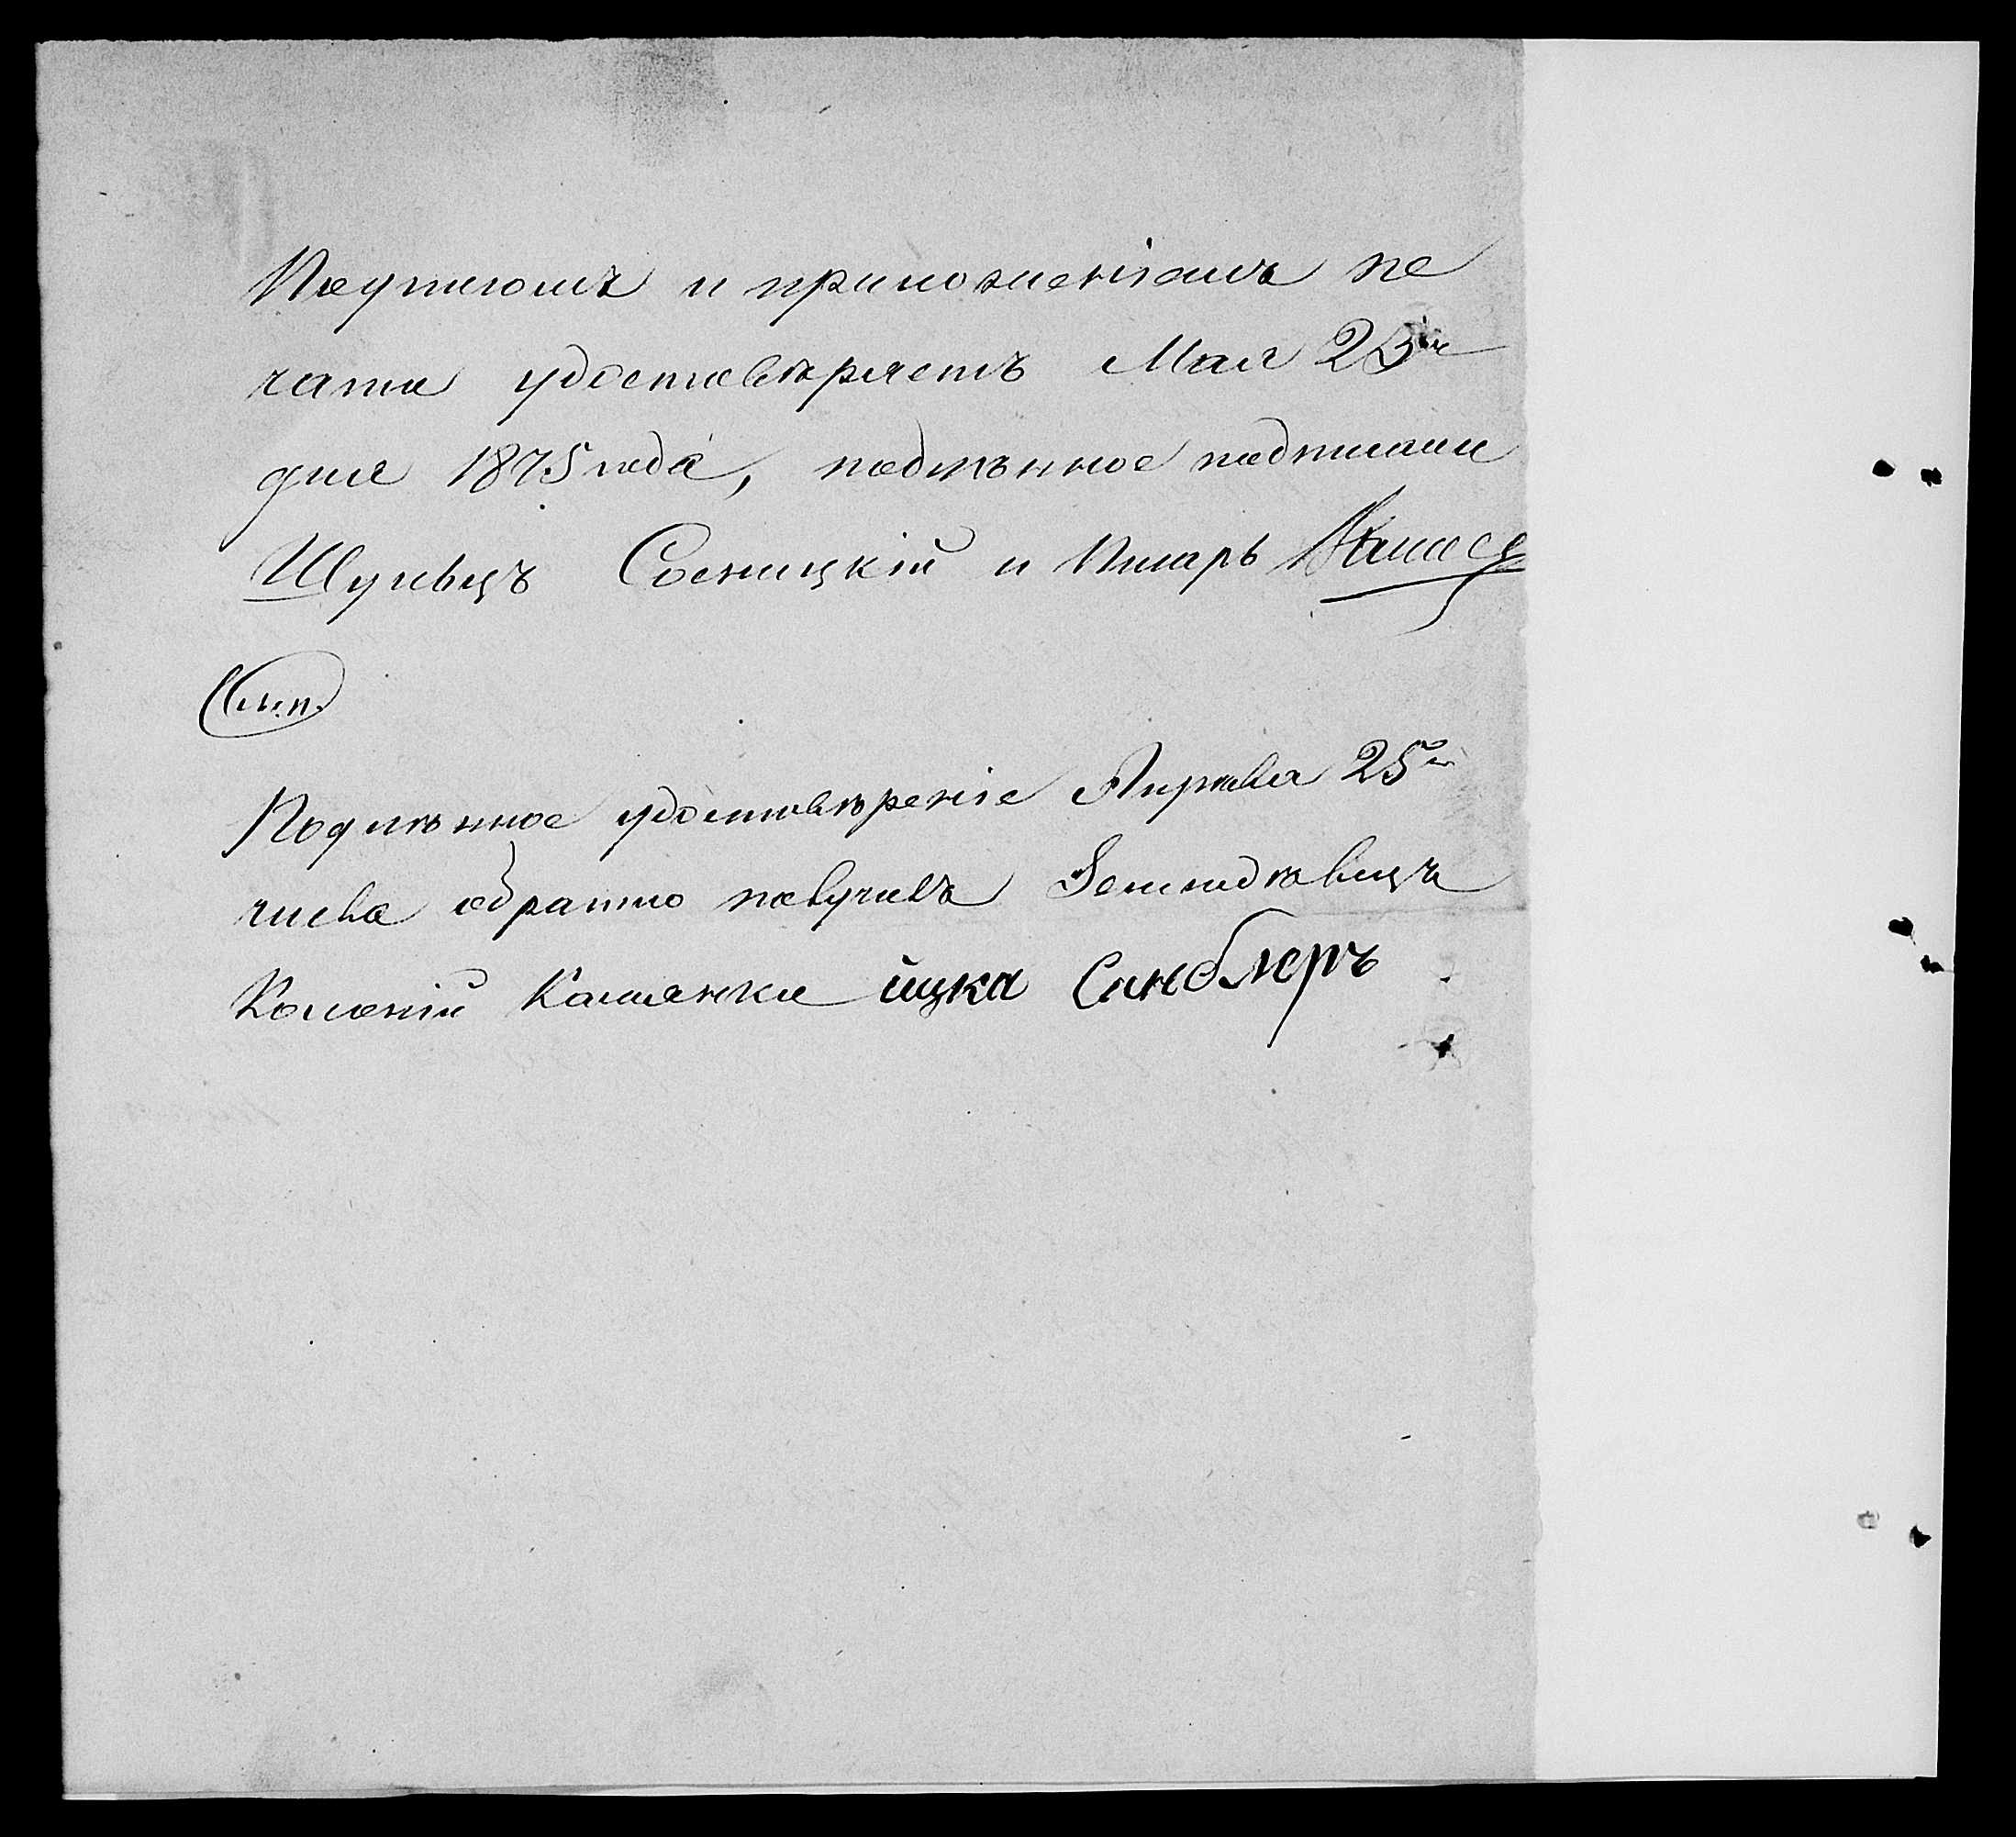 Подписомъ и приложеніемъ пе
чати удостовѣряетъ Мая 23
дня 1875 года, подлѣнное подписали
Шульцъ Сосницкій и Писарь
М. п.
Подлѣнное удостовѣреніе Апрѣля 25го
числа обратно получилъ Земледѣлецъ
Колоніи Камянки ицка Сандлеръ